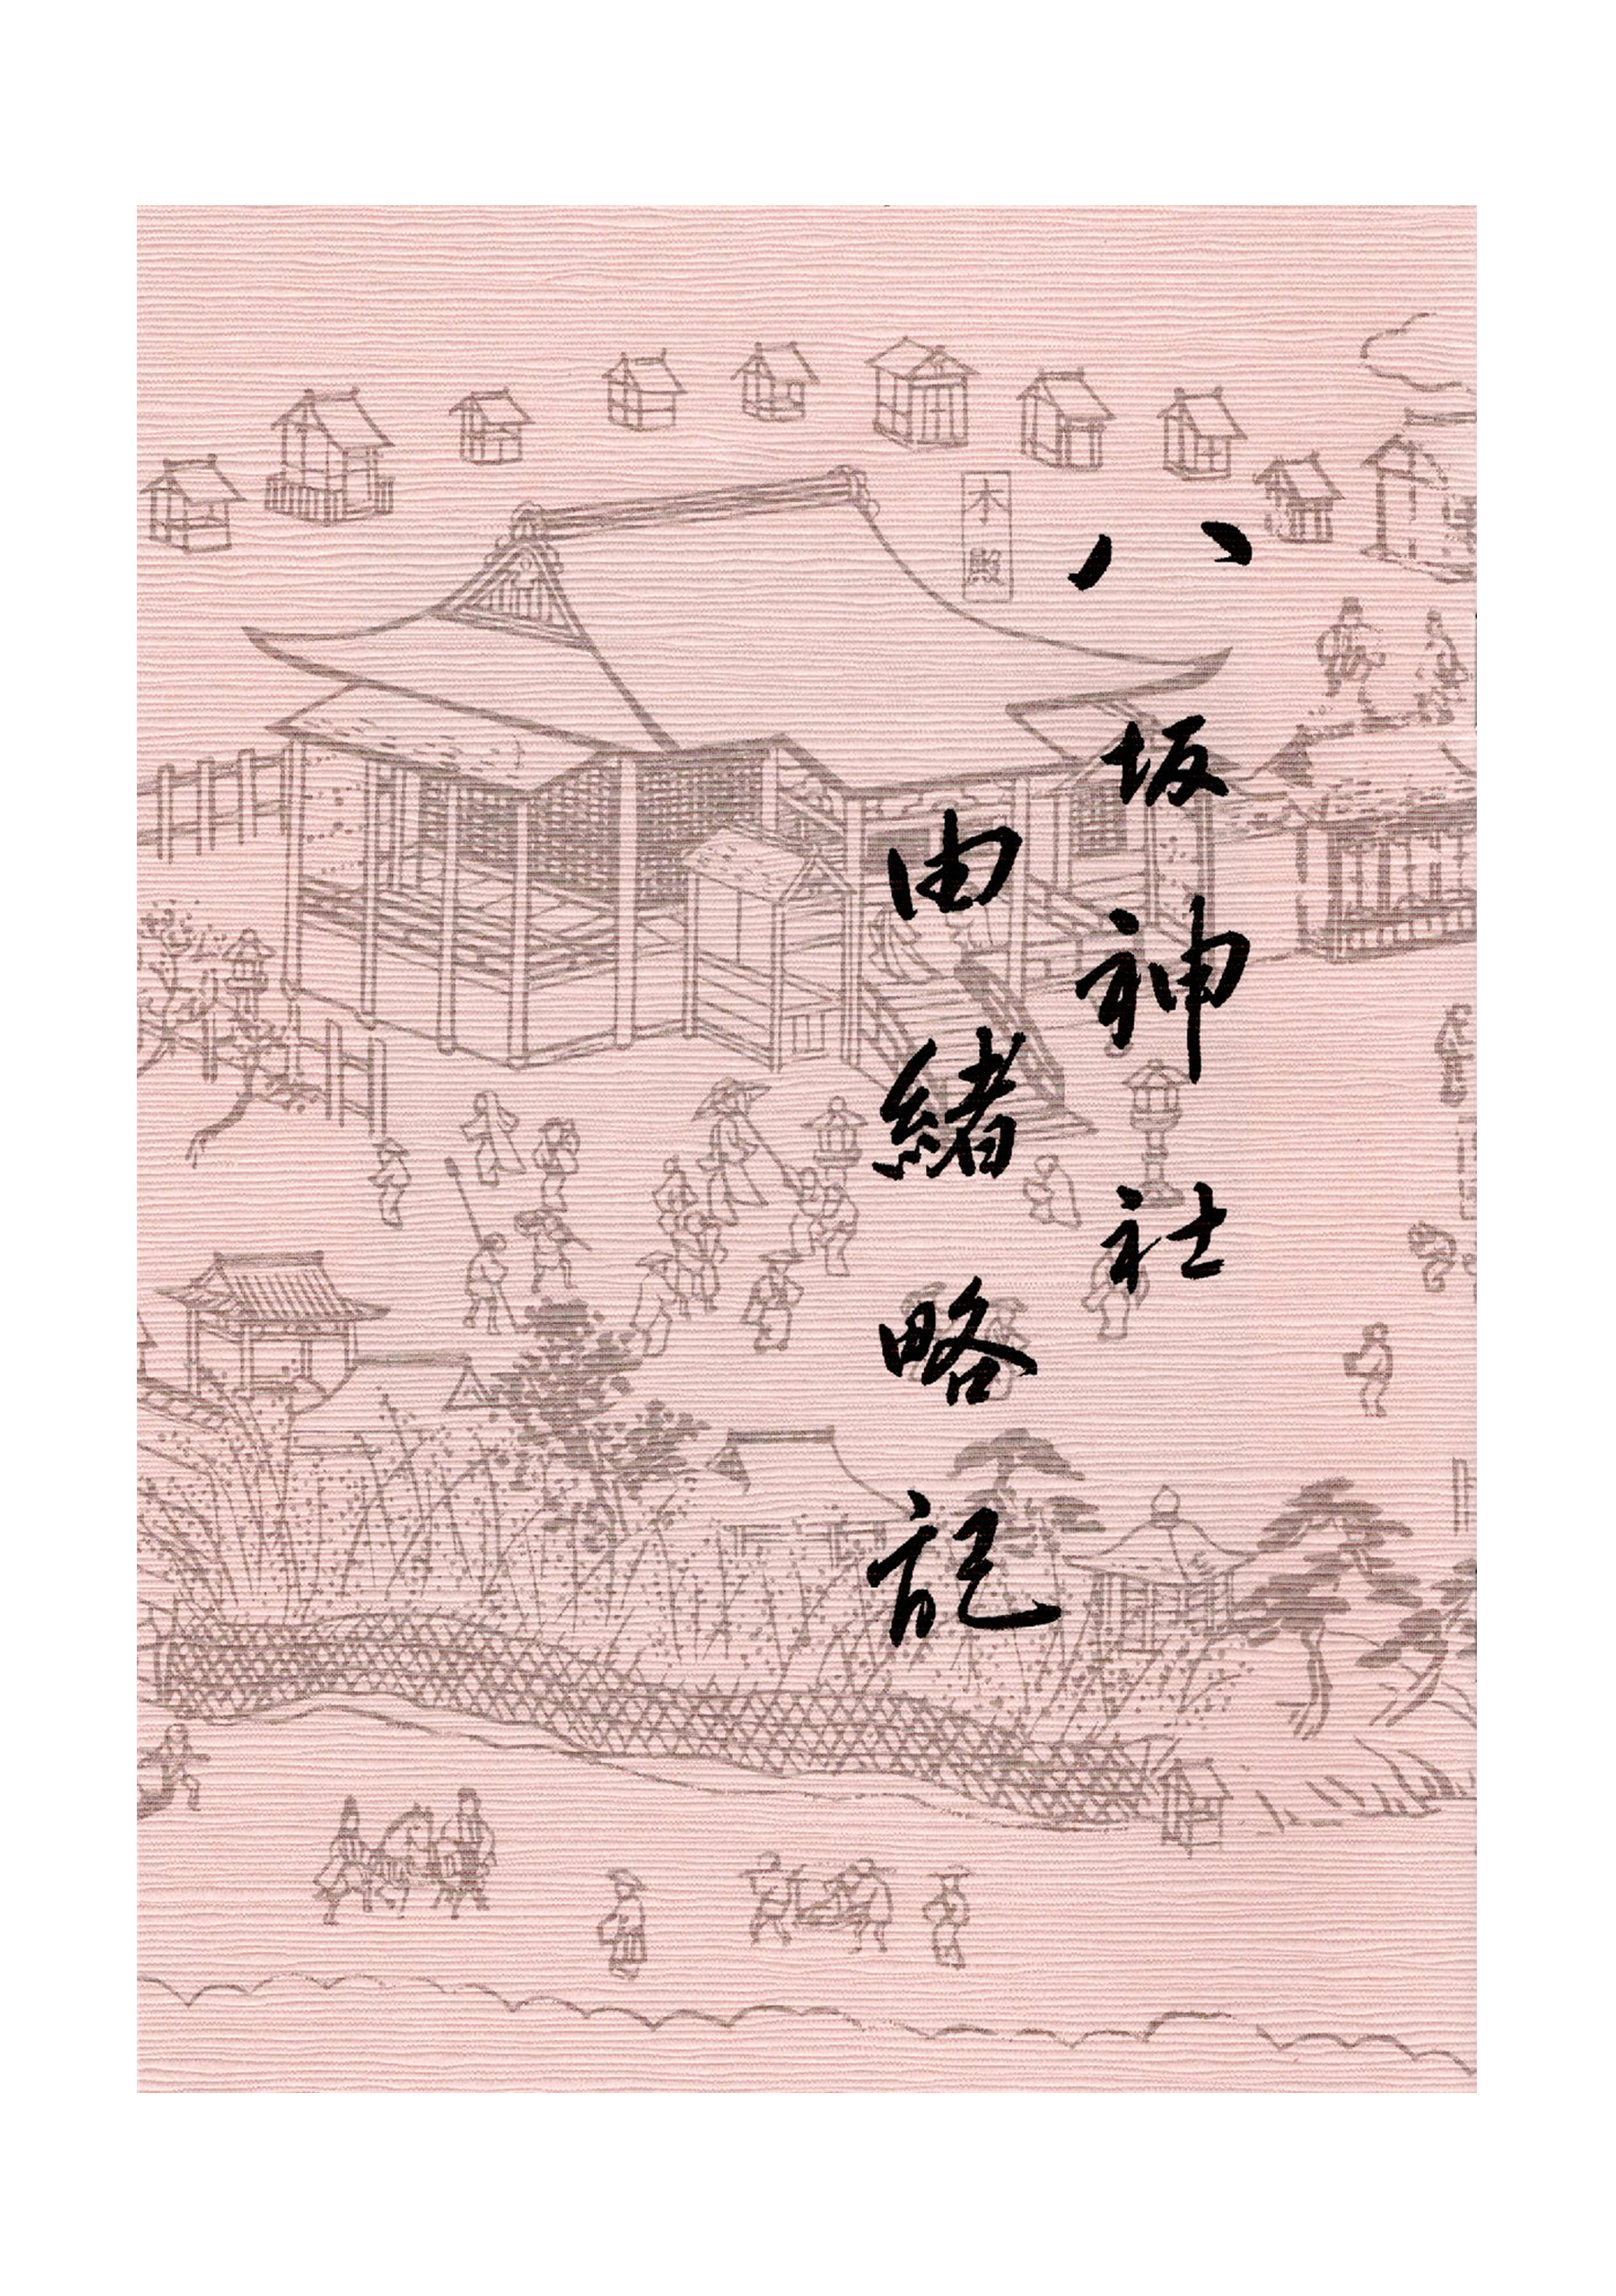 八坂神社
由緒略記
本殿